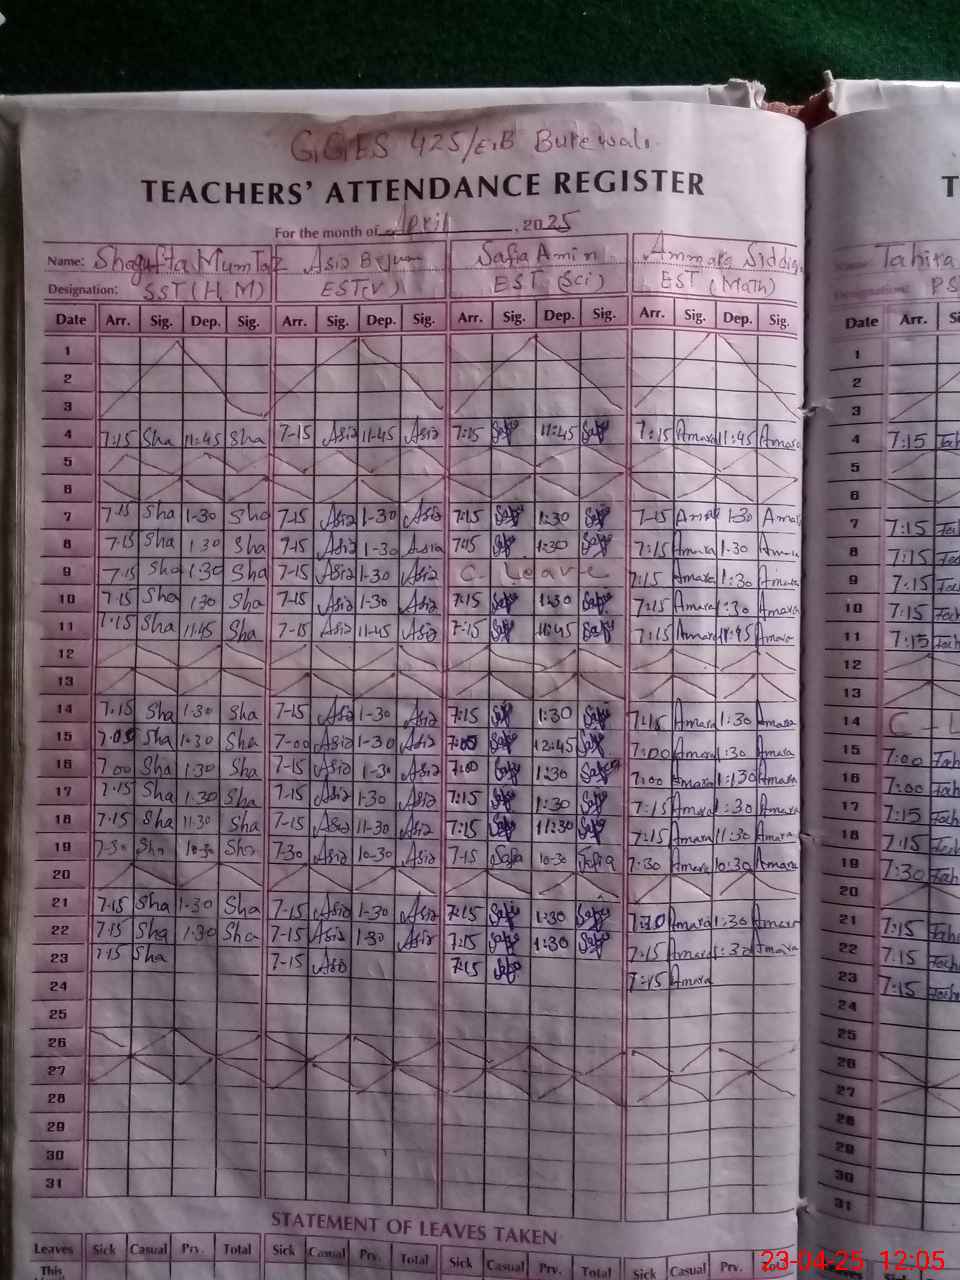 G.G.E.S 425/E.B Burewala.
TEACHERS' ATTENDANCE REGISTER
For the month of April, 2025
Name: Shagufta Mumtaz Asia Begum Safia Amin Ammara Siddiq Name: Tahira
Designation: SST (H.M) EST(V) EST (Sci) EST (Math) Designation: PS
Date Arr. Sig. Dep. Sig. Arr. Sig. Dep. Sig. Arr. Sig. Dep. Sig. Arr. Sig. Dep. Sig. Date Arr.
1 1
2 2
3 3
4 7:15 Sha 11:45 Sha 7-15 Asia 11-45 Asia 7:15 Safia 11:45 Safia 7:15 Amara 11:45 Amara 4 7:15
5 5
6 6
7 7.15 Sha 1-30 Sha 7-15 Asia 1-30 Asia 7:15 Safia 1:30 Safia 7-15 Amara 1-30 Amara 7 7:15
8 7.15 Sha 1.30 Sha 7-15 Asia 1-30 Asia 7:15 Safia 1:30 Safia 7:15 Amara 1-30 Amara 8 7:15
9 7.15 Sha 1-30 Sha 7-15 Asia 1-30 Asia C. Leave 7:15 Amara 1:30 Amara 9 7:15
10 7.15 Sha 1.30 Sha 7-15 Asia 1-30 Asia 7:15 Safia 1:30 Safia 7:15 Amara 1:30 Amara 10 7:15
11 7.15 Sha 11.45 Sha 7-15 Asia 11-45 Asia 7:15 Safia 11:45 Safia 7:15 Amara 11:45 Amara 11 7:15
12 12
13 13
14 7.15 Sha 1.30 Sha 7-15 Asia 1-30 Asia 7:15 Safia 1:30 Safia 7:15 Amara 1:30 Amara 14 C-L
15 Sha 1-30 Sha 7-00 Asia 1-30 Asia 12:45 Safia 7:00 Amara 1:30 Amara 15 7:00
16 7.00 Sha 1.30 Sha 7-15 Asia 1-30 Asia 7:00 Safia 1:30 Safia 7:00 Amara 1:30 Amara 16 7:00
17 7.15 Sha 1.30 Sha 7-15 Asia 1-30 Asia 7:15 Safia 1:30 Safia 7:15 Amara 1:30 Amara 17 7:15
18 7.15 Sha 11.30 Sha 7-15 Asia 11-30 Asia 7:15 Safia 11:30 Safia 7:15 Amara 11:30 Amara 18 7:15
19 7-30 Sha 10-30 Sha 7-30 Asia 10-30 Asia 7-15 Safia 10-30 Safia 7:30 Amara 10:30 Amara 19 7:30
20 20
21 7-15 Sha 1-30 Sha 7-15 Asia 1-30 Asia 7:15 Safia 1:30 Safia Amara 1:30 Amara 21 7:15
22 7.15 Sha 1.30 Sha 7-15 Asia 1-30 Asia 7:15 Safia 1:30 Safia 7:15 Amara 1:30 Amara 22 7:15
23 7.15 Sha 7-15 Asia 7:15 Safia 7:15 Amara 23 7:15
24 24
25 25
26 26
27 27
28 28
29 29
30 30
31 31
STATEMENT OF LEAVES TAKEN
Leaves Sick Casual Prv. Total Sick Casual Prv. Total Sick Casual Prv. Total Sick Casual Prv. Total
This
23-04-25 12:05